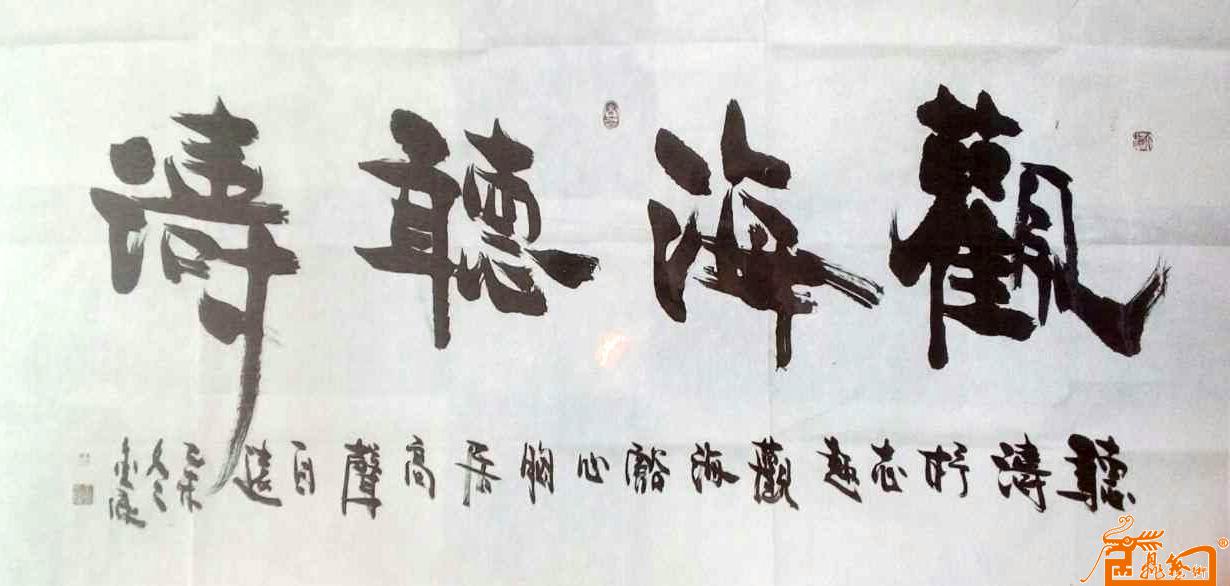 觀海聽濤
聽濤抒志趣觀海豁心胸居高聲自遠